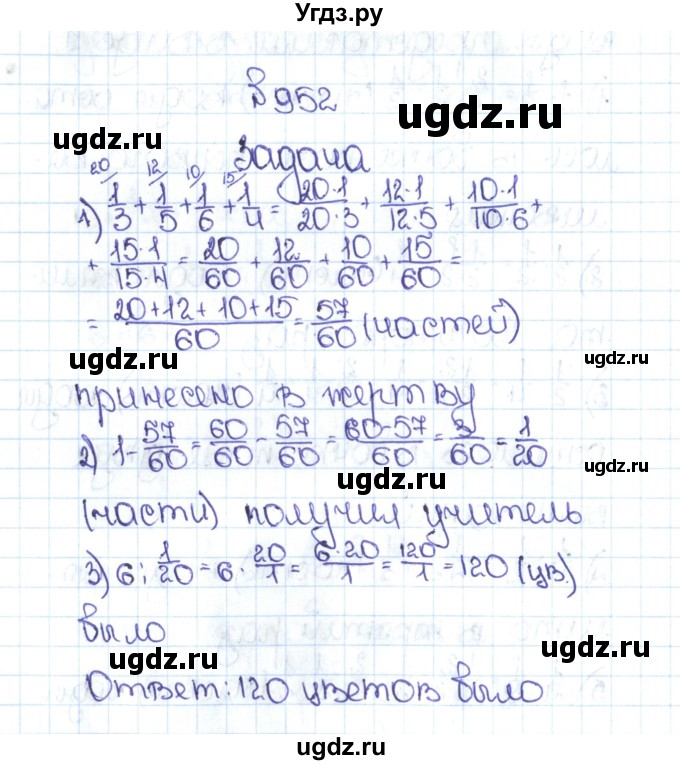 Угдз.ру
№952
ugdz.ru
ugdz.ru
Задача
20 12 10 15
1) 1/3 + 1/5 + 1/6 + 1/4 = 20·1/20·3 + 12·1/12·5 + 10·1/10·6 +
+ 15·1/15·4 = 20/60 + 12/60 + 10/60 + 15/60 =
= 20+12+10+15/60 = 57/60 (частей)
ugdz.ru
ugdz.ru
принесено в жертву
2) 1 - 57/60 = 60/60 - 57/60 = 60-57/60 = 3/60 = 1/20
ugdz.ru
ugdz.ru
(части) получил учитель
3) 6 : 1/20 = 6 · 20/1 = 6·20/1 = 120/1 = 120 (цв.)
было
ugdz.ru
ugdz.ru
Ответ: 120 цветов было
ugdz.ru